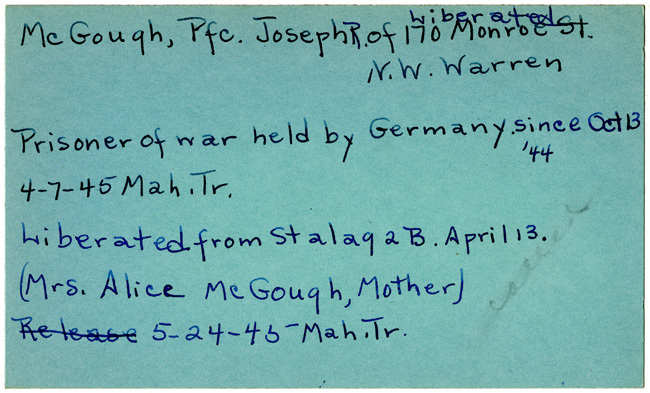 Liberated
McGough, Pfc. Joseph R. of 170 Monroe St.
N.W. Warren
Prisoner of war held by Germany since Oct 13
'44
4-7-45 Mah. Tr.
Liberated from Stalag 2B. April 13.
(Mrs. Alice McGough, Mother)
Release 5-24-45 Mah. Tr.